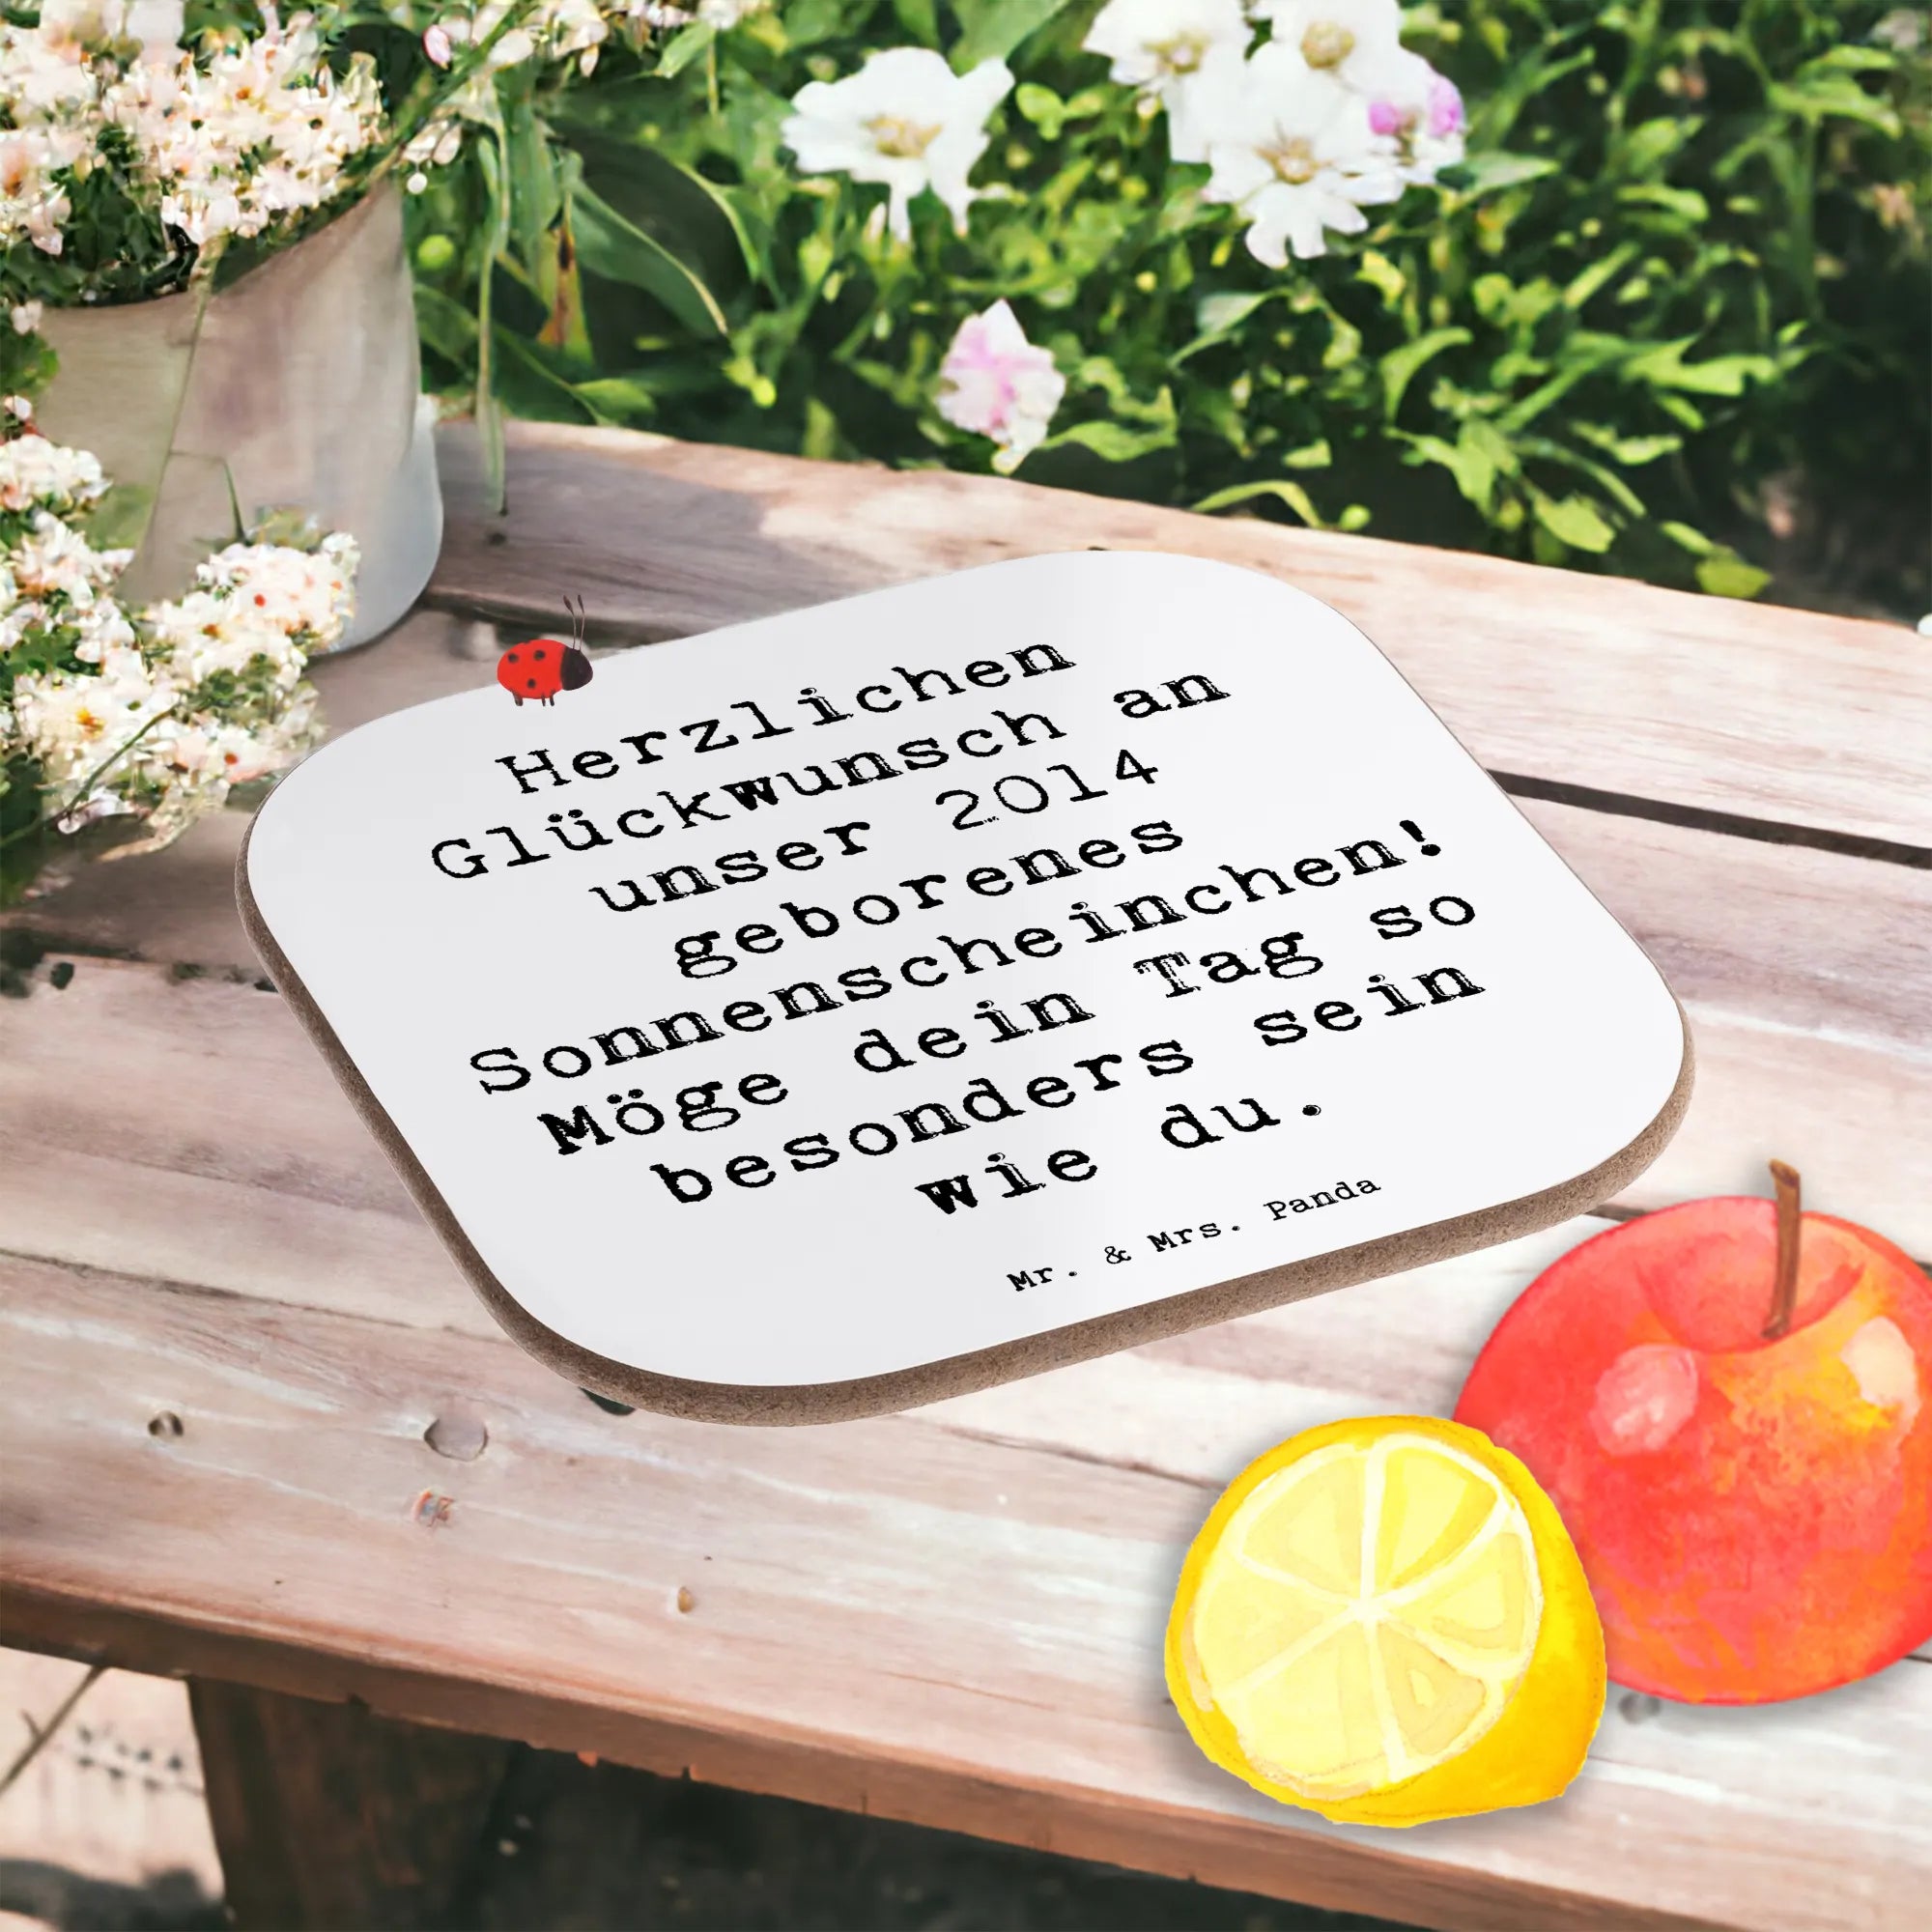 Herzlichen
Glückwunsch an
unser 2014
geborenes
Sonnenscheinchen!
Möge dein Tag so
besonders sein
wie du.
Mr. & Mrs. Panda